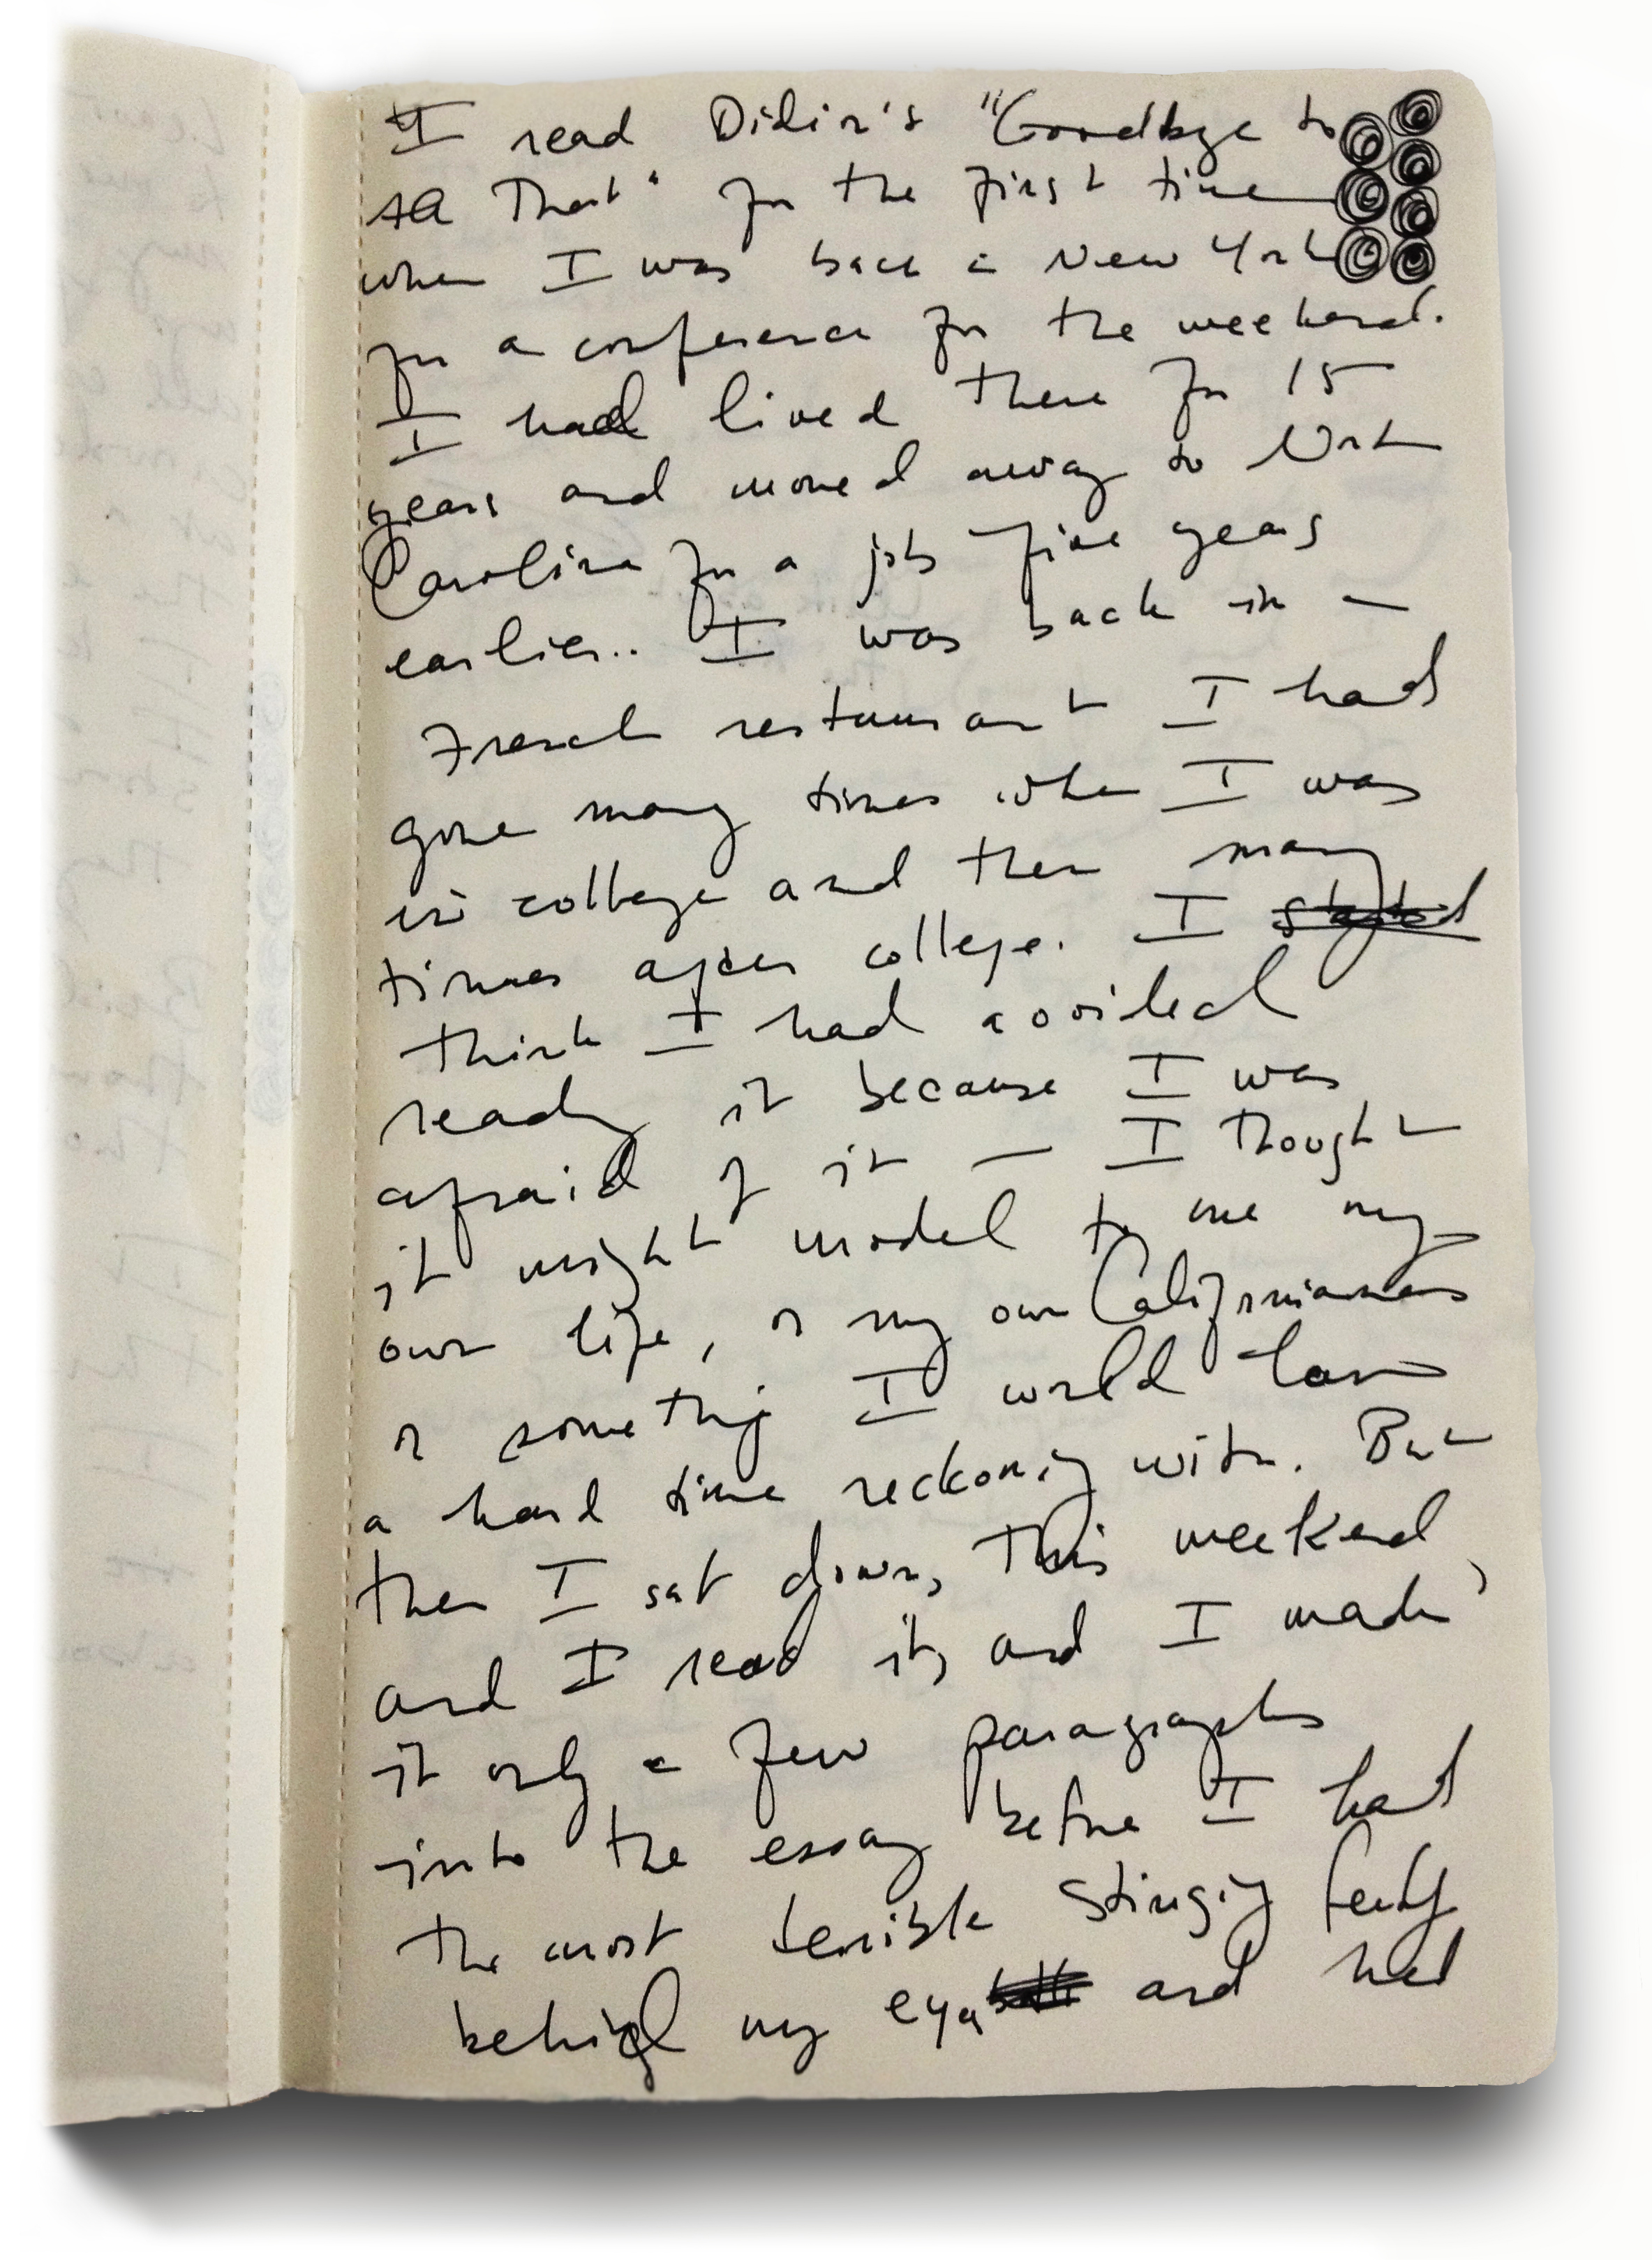 I read Didion's "Goodbye to
All That" for the first time
when I was back in New York
for a conference for the weekend.
I had lived there for 15
years and moved away to North
Carolina for a job five years
earlier.. I was back in a
French restaurant I had
gone many times when I was
in college and then many
times after college. I started
think I had avoided
ready it because I was
afraid of it — I thought
it might model to me my
own life, or my own Californianness
or something I would have
a hard time reckoning with. But
then I sat down, this weekend,
and I read it, and I made
it only a few paragraphs
into the essay before I had
the most terrible stinging feeling
behind my eyes and had